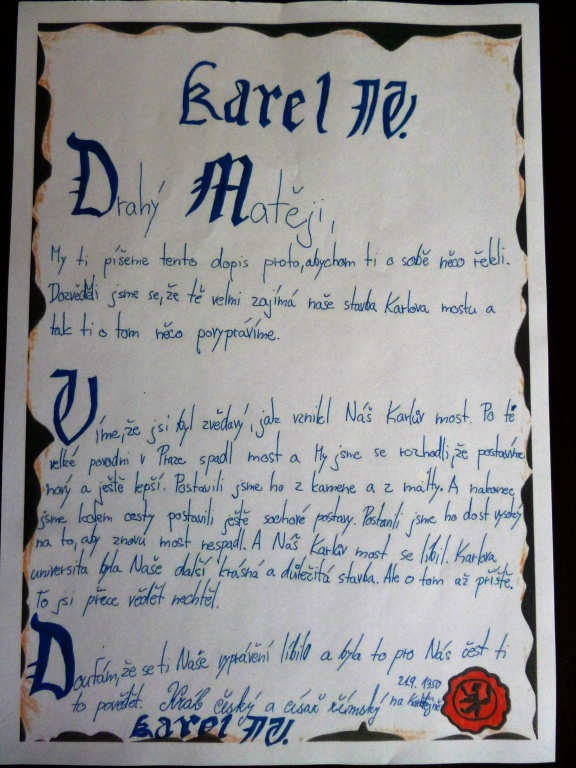 Karel IV.
Drahý Matěji,
My ti píšeme tento dopis proto, abychom ti o sobě něco řekli.
Dozvěděli jsme se, že tě velmi zajímá naše stavba Karlova mostu a
tak ti o tom něco povyprávíme.
Víme, že jsi byl zvědavý, jak vznikl Náš Karlův most. Po té
velké povodni v Praze spadl most a My jsme se rozhodli, že postavíme
nový a ještě lepší. Postavili jsme ho z kamene a z malty. A nakonec
jsme kolem cesty postavili ještě sochové postavy. Postavili jsme ho dost vysoký
na to, aby znovu most nespadl. A Náš Karlův most se líbil. Karlova
universita byla Naše další krásná a důležitá stavba. Ale o tom až příště.
To jsi přece vědět nechtěl.
Doufám, že se ti Naše vyprávění líbilo a byla to pro Nás čest ti
to povědět. Král český a císař římský
21.9. 1350
na
Karel IV.